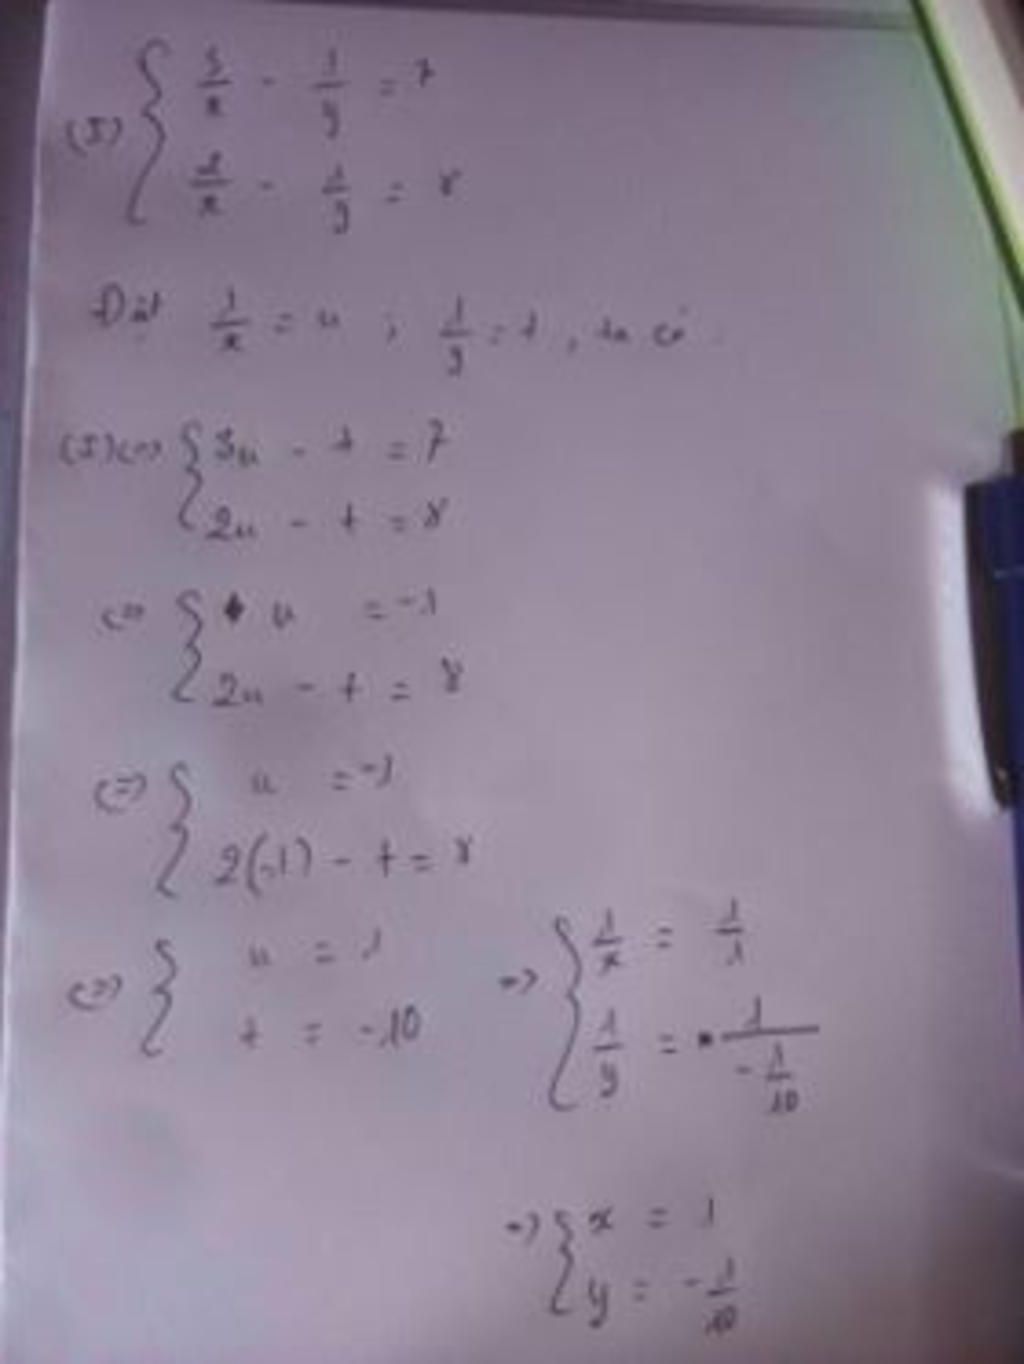 (I) { 3/x - 1/y = 7
2/x - 1/y = 8
Đặt 1/x = u ; 1/y = t , ta có
(I) <=> { 3u - t = 7
2u - t = 8
<=> { u = -1
2u - t = 8
<=> { u = -1
2(-1) - t = 8
<=> { u = 1
t = -10
=> { 1/x = 1/1
1/y = 1/(-1/10)
=> { x = 1
y = -1/10